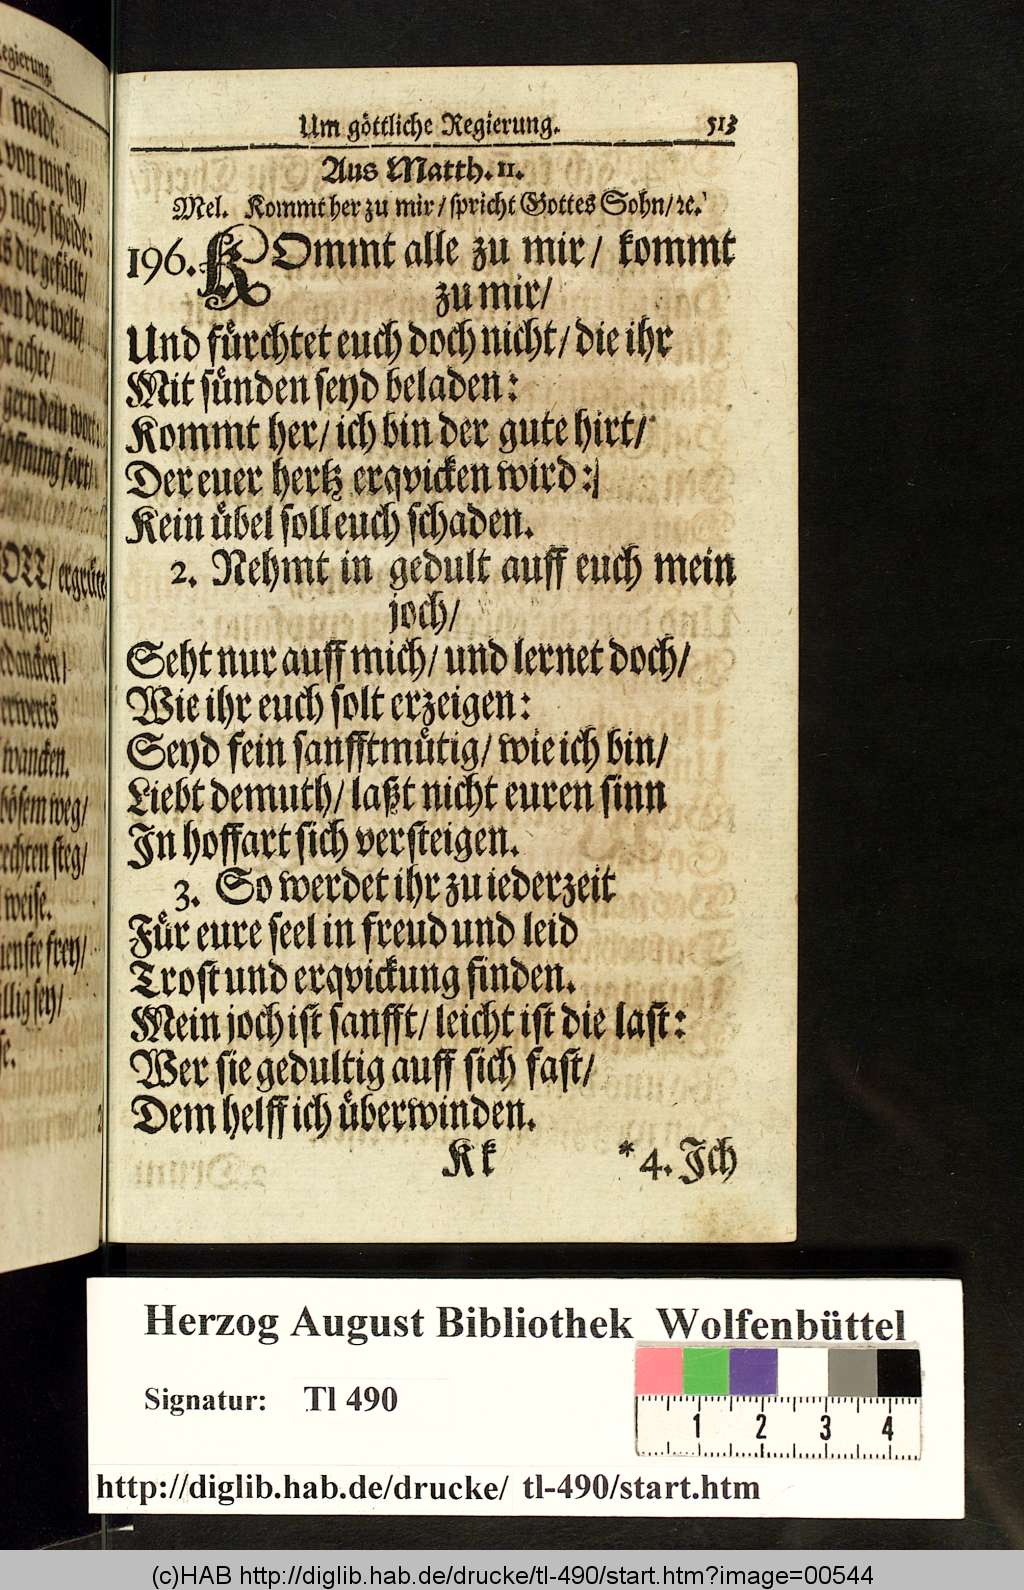 Um göttliche Regierung. 513
Aus Matth. 11.
Mel. Kommt her zu mir/ spricht Gottes Sohn/ ꝛc.
196. KOmmt alle zu mir/ kommt
zu mir/
Und fürchtet euch doch nicht/ die ihr
Mit sünden seyd beladen:
Kommt her/ ich bin der gute hirt/
Der euer hertz erqvicken wird:
Kein übel soll euch schaden.
2. Nehmt in gedult auff euch mein
joch/
Seht nur auff mich/ und lernet doch/
Wie ihr euch solt erzeigen:
Seyd fein sanfftmütig/ wie ich bin/
Liebt demuth/ laßt nicht euren sinn
In hoffart sich versteigen.
3. So werdet ihr zu iederzeit
Für eure seel in freud und leid
Trost und erqvickung finden.
Mein joch ist sanfft/ leicht ist die last:
Wer sie gedultig auff sich fast/
Dem helff ich überwinden.
Kk *4. Ich
Herzog August Bibliothek Wolfenbüttel
Signatur: Tl 490
1 2 3 4
http://diglib.hab.de/drucke/ tl-490/start.htm
(c)HAB http://diglib.hab.de/drucke/tl-490/start.htm?image=00544